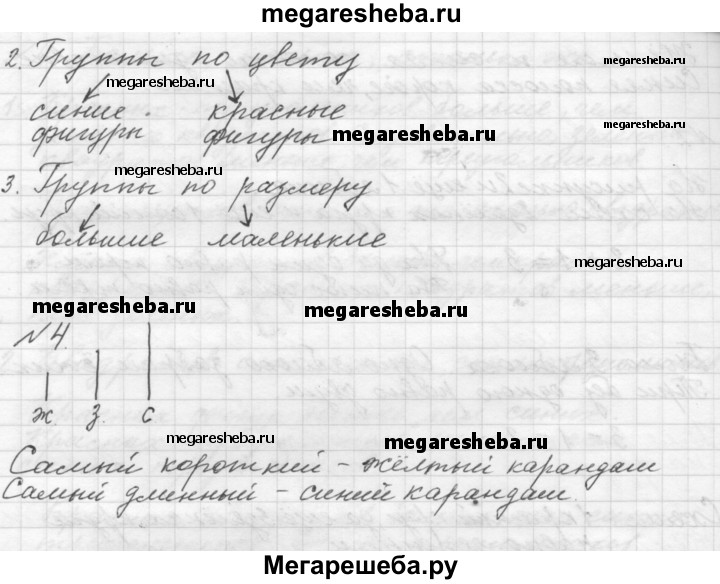 megaresheba.ru
2. Группы по цвету
megaresheba.ru
синие красные
фигуры фигуры megaresheba.ru
megaresheba.ru
3. Группы по размеру
большие маленькие
megaresheba.ru
megaresheba.ru megaresheba.ru
№4.
ж. з. с
megaresheba.ru megaresheba.ru
Самый короткий – жёлтый карандаш
Самый длинный – синий карандаш.
Мегарешеба.ру